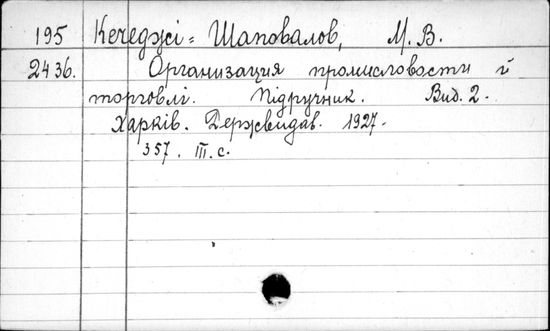 195 Кечеджі=Шаповалов, М. В.
2436. Организация промисловости й
торговлі. Підручник. Вид. 2.
Харків. Держвидав. 1927.
357. III. с.